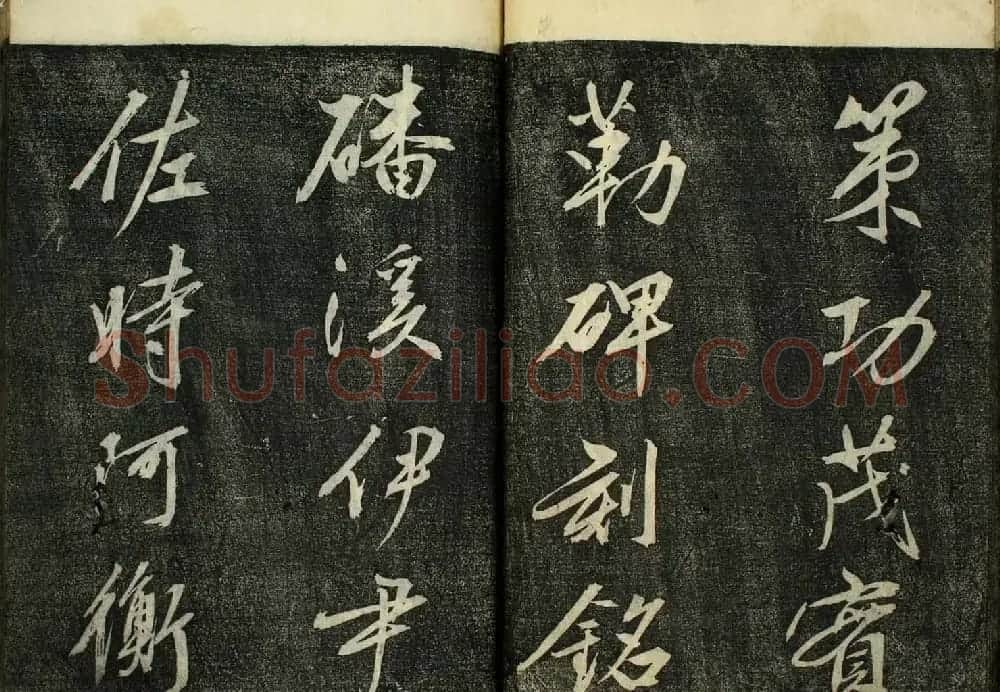 策功茂實
勒碑刻銘
磻溪伊尹
佐時阿衡
Shufaziliao.COM